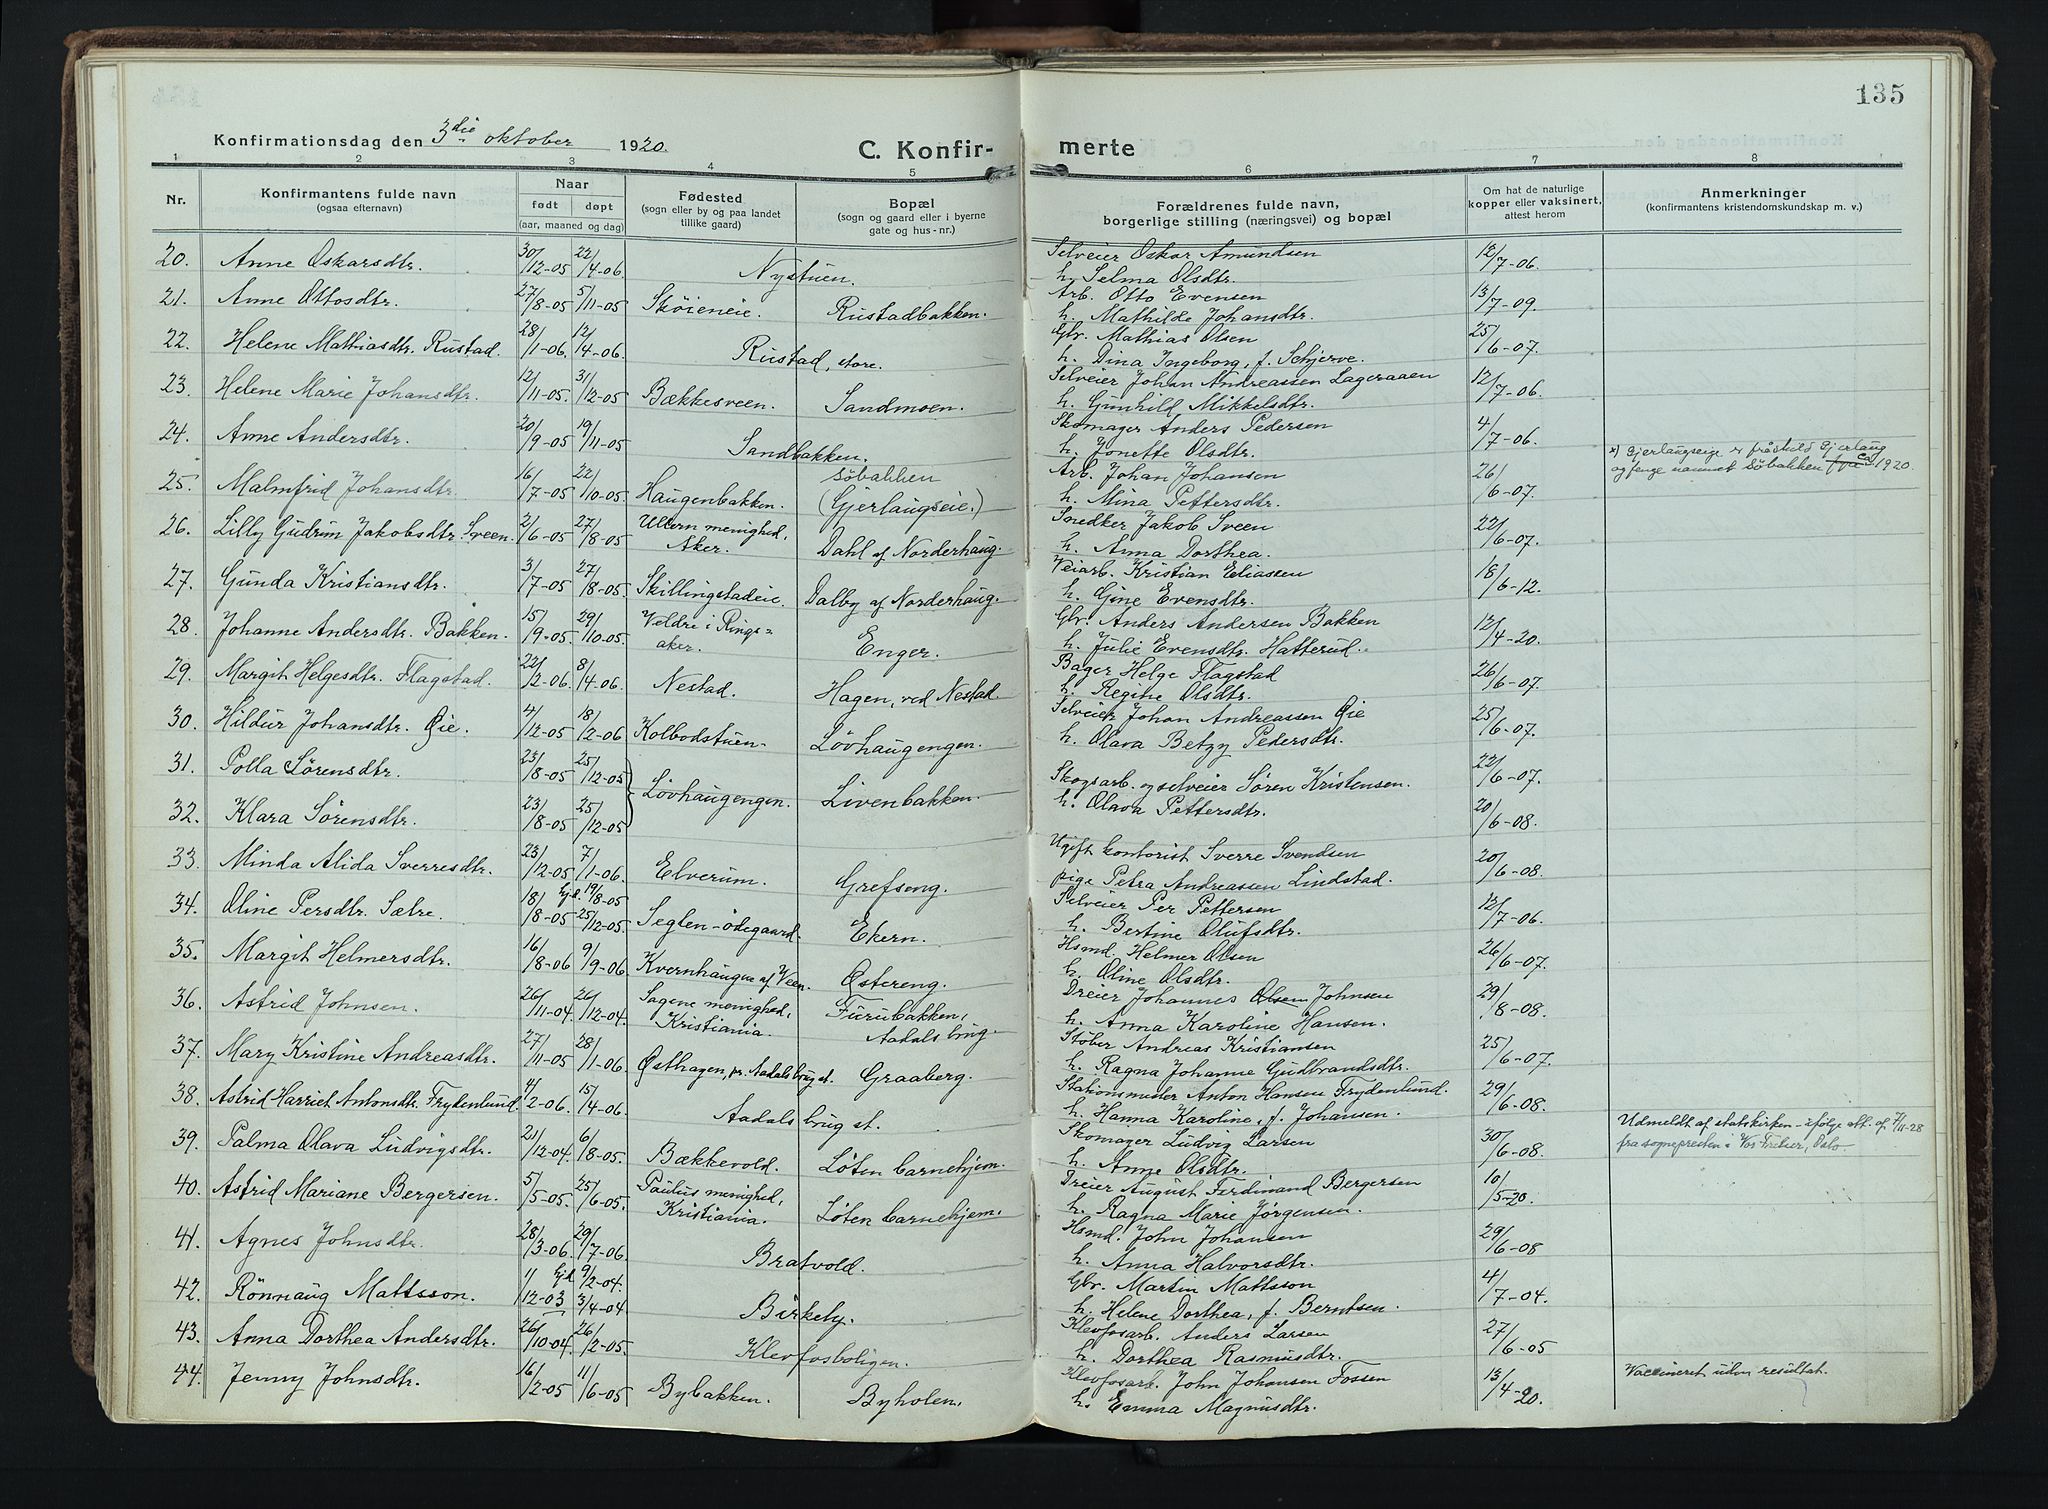 135
Konfirmationsdag den 3die oktober 1920.
C. Konfir- merte
1 2 3 4 5 6 7 8
Nr. | Konfirmantens fulde navn (ogsaa efternavn) | Naar født døpt (aar, maaned og dag) | Fødested (sogn eller by og paa landet tillike gaard) | Bopæl (sogn og gaard eller i byerne gate og hus-nr.) | Forældrenes fulde navn, borgerlige stilling (næringsvei) og bopæl | Om hat de naturlige kopper eller vaksinert, attest herom | Anmerkninger (konfirmantens kristendomskundskap m. v.)
20. Anne Oskarsdtr. 30/12-05 22/4-06 Nystuen. Selveier Oskar Amundsen h. Selma Olsdtr. 12/7-06.
21. Anne Ottosdtr. 27/8-05 5/11-05 Skøieneie. Rustadbakken. Arb. Otto Evensen h. Mathilde Johansdtr. 13/7-09.
22. Helene Mathiasdtr. Rustad. 28/1-06. 12/4-06. Rustad, store. Gbr. Mathias Olsen h. Dina Ingeborg, f. Schjerve. 25/6-07.
23. Helene Marie Johansdtr. 12/11-05. 31/12-05 Bækkesveen. Sandmoen. Selveier Johan Andreassen Lageraaen h. Gunhild Mikkelsdtr. 12/7-06.
24. Anne Andersdtr. 20/9-05 19/11-05 Sandbakken. Skomager Anders Pedersen h. Jonette Olsdtr. 4/7-06.
25. Malmfrid Johansdtr. 16/7-05 22/10-05 Haugenbakken. Søbakken (Gjerlaugseie.) Arb. Johan Johansen h. Mina Pettersdtr. 26/6-07. x) Gjerlaugseige er fråskild Gjerlaug og fenge namnet Søbakken ca 1920.
26. Lilly Gudrun Jakobsdtr. Sveen. 2/6-05 27/8-05 Ullern menighed, Aker. Dahl af Norderhaug. Snedker Jakob Sveen h. Anna Dorthea. 22/6-07.
27. Gunda Kristiansdtr. 3/7-05 27/8-05 Skillingstadeie. Dalby af Norderhaug. Veiarb. Kristian Eliassen h. Gine Evensdtr. 18/6-12.
28. Johanne Andersdtr. Bakken. 15/9-05. 29/10-05. Veldre i Rings=aker. Enger. Gbr. Anders Andersen Bakken h. Julie Evensdtr. Hatterud. 12/4-20.
29. Margit Helgesdtr. Flagstad. 22/2-06. 8/4-06. Nestad. Hagen, ved Nestad. Bager Helge Flagstad h. Regine Olsdtr. 26/6-07.
30. Hildur Johansdtr. Øie. 4/12-05 18/2-06 Kolbodstuen. Løvhaugengen. Selveier Johan Andreassen Øie h. Olava Betzy Pedersdtr. 25/6-07.
31. Polla Sørensdtr. 23/8-05 25/12-05 Løvhaugengen. Livenbakken. Skogsarb. og selveier Søren Kristensen. h. Olava Pettersdtr. 22/6-07.
32. Klara Sørensdtr. 23/8-05 25/12-05 20/6-08.
33. Minda Alida Sverresdtr. 23/12-05 7/1-06. Elverum. Grefseng. Ugift kontorist Sverre Svendsen pige Petra Andreassen Lindstad. 20/6-08.
34. Oline Persdtr. Sætre. 18/8-05 hjd. 19/8-05 25/12-05. Seglen-ødegaard. Ekern. Selveier Per Pettersen h. Bertine Olufsdtr. 12/7-06.
35. Margit Helmersdtr. 16/8-06 9/9-06 Kvernhaugen af Veen. Østereng. Hsmd. Helmer Olsen h. Oline Olsdtr. 26/6-07.
36. Astrid Johnsen. 26/11-04. 26/12-04. Sagene menighed, Kristiania. Furubakken, Aadalsbrug. Dreier Johannes Olsen Johnsen h. Anna Karoline Hansen. 29/8-08.
37. Mary Kristine Andreasdtr. 27/11-05 28/1-06. Østhagen, pr. Aadalsbrug st. Graaberg. Støber Andreas Kristiansen h. Ragna Johanne Gudbrandsdtr. 25/6-07.
38. Astrid Harriet Antonsdtr. Frydenlund 4/2-06. 15/4-06. Aadalsbrug st. Stationsmester Anton Hansen Frydenlund. h. Hanna Karoline, f. Johansen. 29/6-08.
39. Palma Olava Ludvigsdtr. 21/12-04. 6/8-05. Bækkevold. Løten barnehjem. Skomager Ludvig Larsen h. Anne Olsdtr. 30/6-08. Udmeldt af statskirken - ifølge att. af 7/11-28 fra sognepresten i Vor Frelser, Oslo
40. Astrid Mariane Bergersen. 5/5-05. 25/6-05. Paulus menighed, Kristiania. Løten barnehjem. Dreier August Ferdinand Bergersen h. Ragna Marie Jørgensen. 10/5-20.
41. Agnes Johnsdtr. 28/3-06. 29/7-06. Bratvold. Hsmd. John Johansen h. Anna Halvorsdtr. 29/6-08
42. Rönnaug Mattsson. 1/12-03 hjd. 9/2-04. 3/4-04 Birkely. Gbr. Martin Mattsson h. Helene Dorthea, f. Berntsen. 4/7-04.
43. Anna Dorthea Andersdtr. 26/10-04. 26/2-05. Klevfosboligen. Klevfosarb. Anders Larsen h. Dorthea Rasmusdtr. 27/6-05
44. Jenny Johnsdtr. 16/2-05 11/6-05 Bybakken. Byholen. Klevfosarb. John Johansen Fossen h. Emma Magnusdtr. 13/4-20. Vaccineret uden resultat.